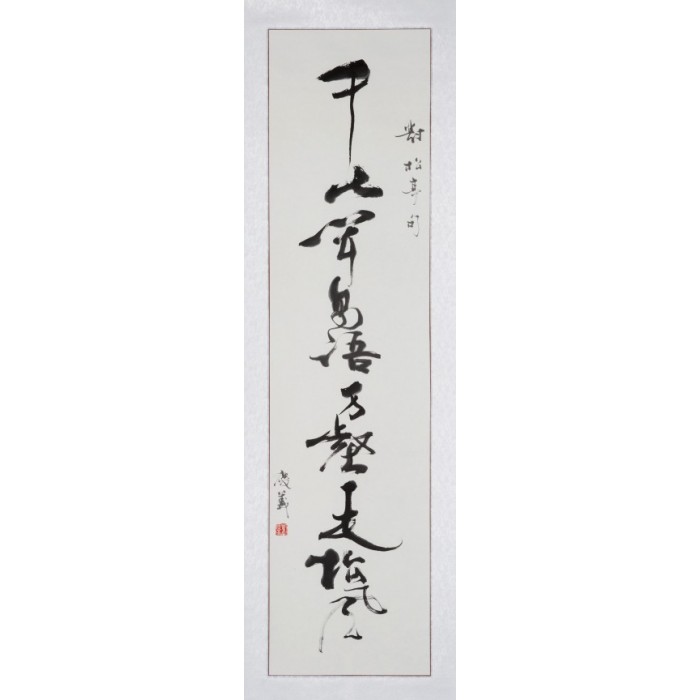 對松亭句
千山聞鳥語万壑走松風
義